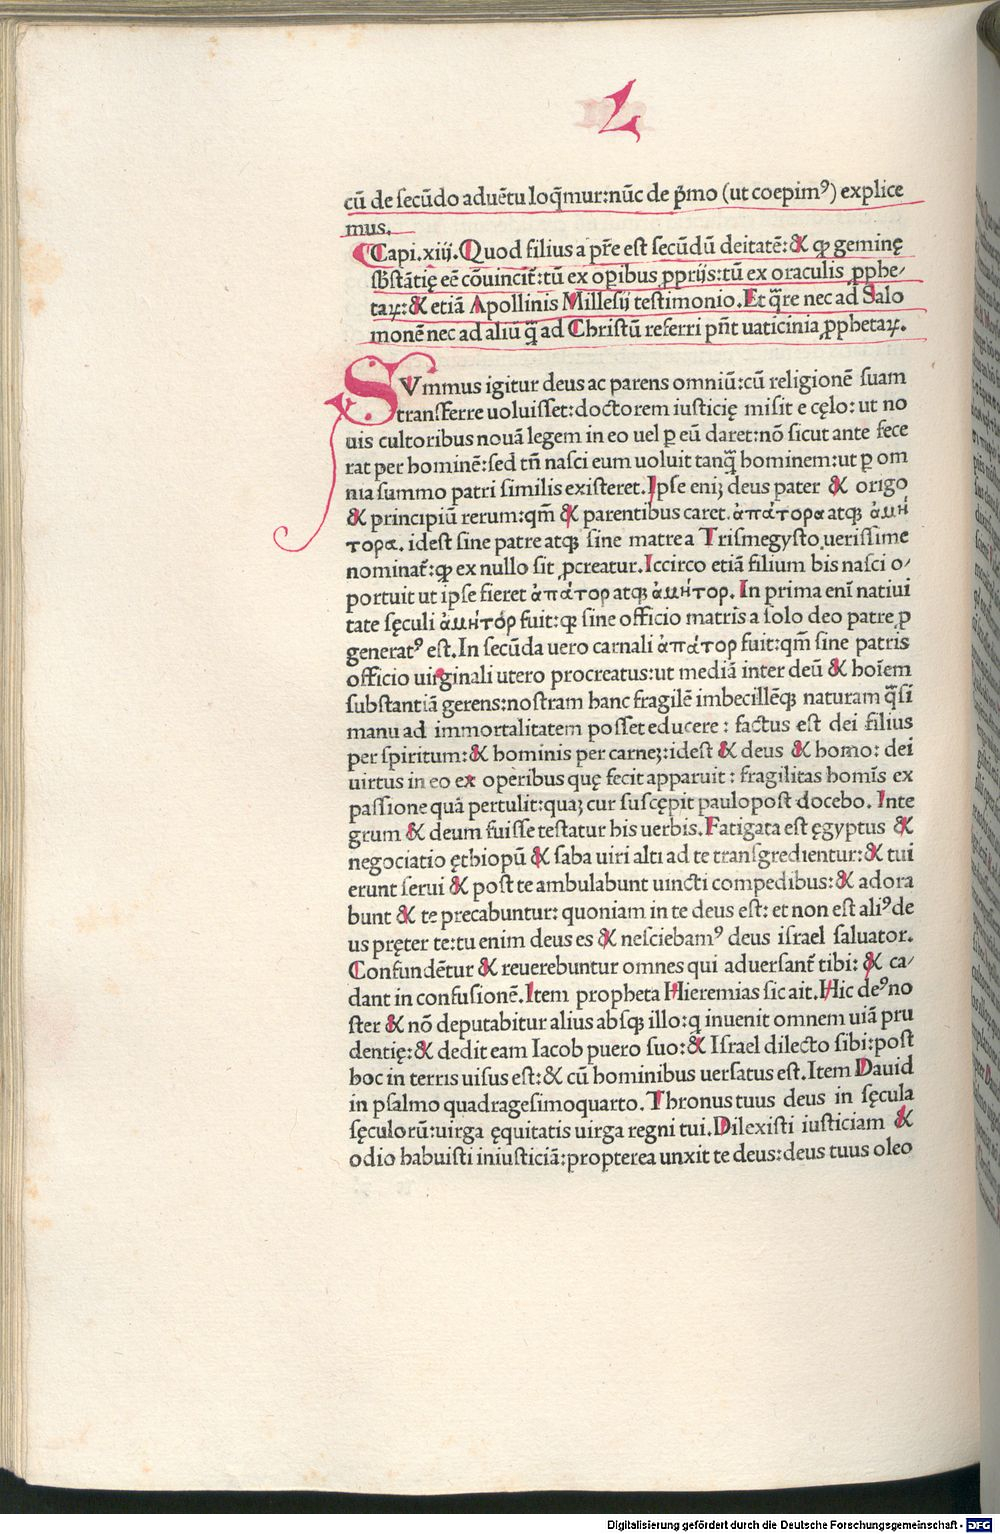 L
cū de ſecūdo aduētu loq̄mur:nūc de p̄mo (ut coepimꝰ) explice
mus.
Capi.xiij.Quod filius a pr̄e est ſecūdū deitatē:& ꝙ geminę
ſb̄stātię eē cōuincit̄:tū ex oꝑibus ꝓprijs:tū ex oraculis ꝓphe⸗
taꝝ:& etiā Apollinis Milleſij testimonio.Et q̄re nec ad Salo
monē nec ad aliū q̄ ad Christū referri pn̄t uaticinia ꝓphetaꝝ.
SVmmus igitur deus ac parens omniū:cū religionē ſuam
tranſferre uoluiſſet:doctorem iusticię miſit e cęlo: ut no
uis cultoribus nouā legem in eo uel ꝑ eū daret:nō ſicut ante fece
rat per hominē:ſed tn̄ naſci eum uoluit tanq̄ hominem:ut ꝑ om
nia ſummo patri ſimilis existeret.Ipſe eniꝫ deus pater & origo
& principiū rerum:qm̄ & parentibus caret.ἀπάτορα atqꝫ ἀμή
τορα.idest ſine patre atqꝫ ſine matre a Triſmegysto ueriſſime
nominat̄:ꝙ ex nullo ſit ꝓcreatur.Iccirco etiā filium bis naſci o⸗
portuit ut ipſe fieret ἀπάτορ atqꝫ ἀμήτορ. In prima enī natiui
tate ſęculi ἀμήτόρ fuit:ꝙ ſine officio matris a ſolo deo patre ꝓ
generatꝰ est.In ſecūda uero carnali ἀπάτορ fuit:qm̄ ſine patris
officio uirginali utero procreatus:ut mediā inter deū & hoīem
ſubstantiā gerens:nostram hanc fragilē imbecillēqꝫ naturam q̄ſi
manu ad immortalitatem poſſet educere: factus est dei filius
per ſpiritum:& hominis per carneꝫ:idest & deus & homo: dei
uirtus in eo ex operibus quę fecit apparuit: fragilitas homīs ex
paſſione quā pertulit:quaꝫ cur ſuſcępit paulopost docebo. Inte
grum & deum fuiſſe testatur his uerbis.Fatigata est ęgyptus &
negociatio ęthiopū & ſaba uiri alti ad te tranſgredientur:& tui
erunt ſerui & post te ambulabunt uincti compedibus:& adora
bunt & te precabuntur: quoniam in te deus est: et non est aliꝰ de
us pręter te:tu enim deus es & neſciebamꝰ deus iſrael ſaluator.
Confundētur & reuerebuntur omnes qui aduerſant̄ tibi: & ca⸗
dant in confuſionē.Item propheta Hieremias ſic ait.Hic deꝰ no
ster & nō deputabitur alius abſqꝫ illo:q̄ inuenit omnem uiā pru
dentię:& dedit eam Iacob puero ſuo:& Iſrael dilecto ſibi:post
hoc in terris uiſus est:& cū hominibus uerſatus est.Item Dauid
in pſalmo quadrageſimoquarto.Thronus tuus deus in ſęcula
ſęculorū:uirga ęquitatis uirga regni tui.Dilexisti iusticiam &
odio habuisti iniusticiā:propterea unxit te deus:deus tuus oleo
Digitalisierung gefördert durch die Deutsche Forschungsgemeinschaft - DFG